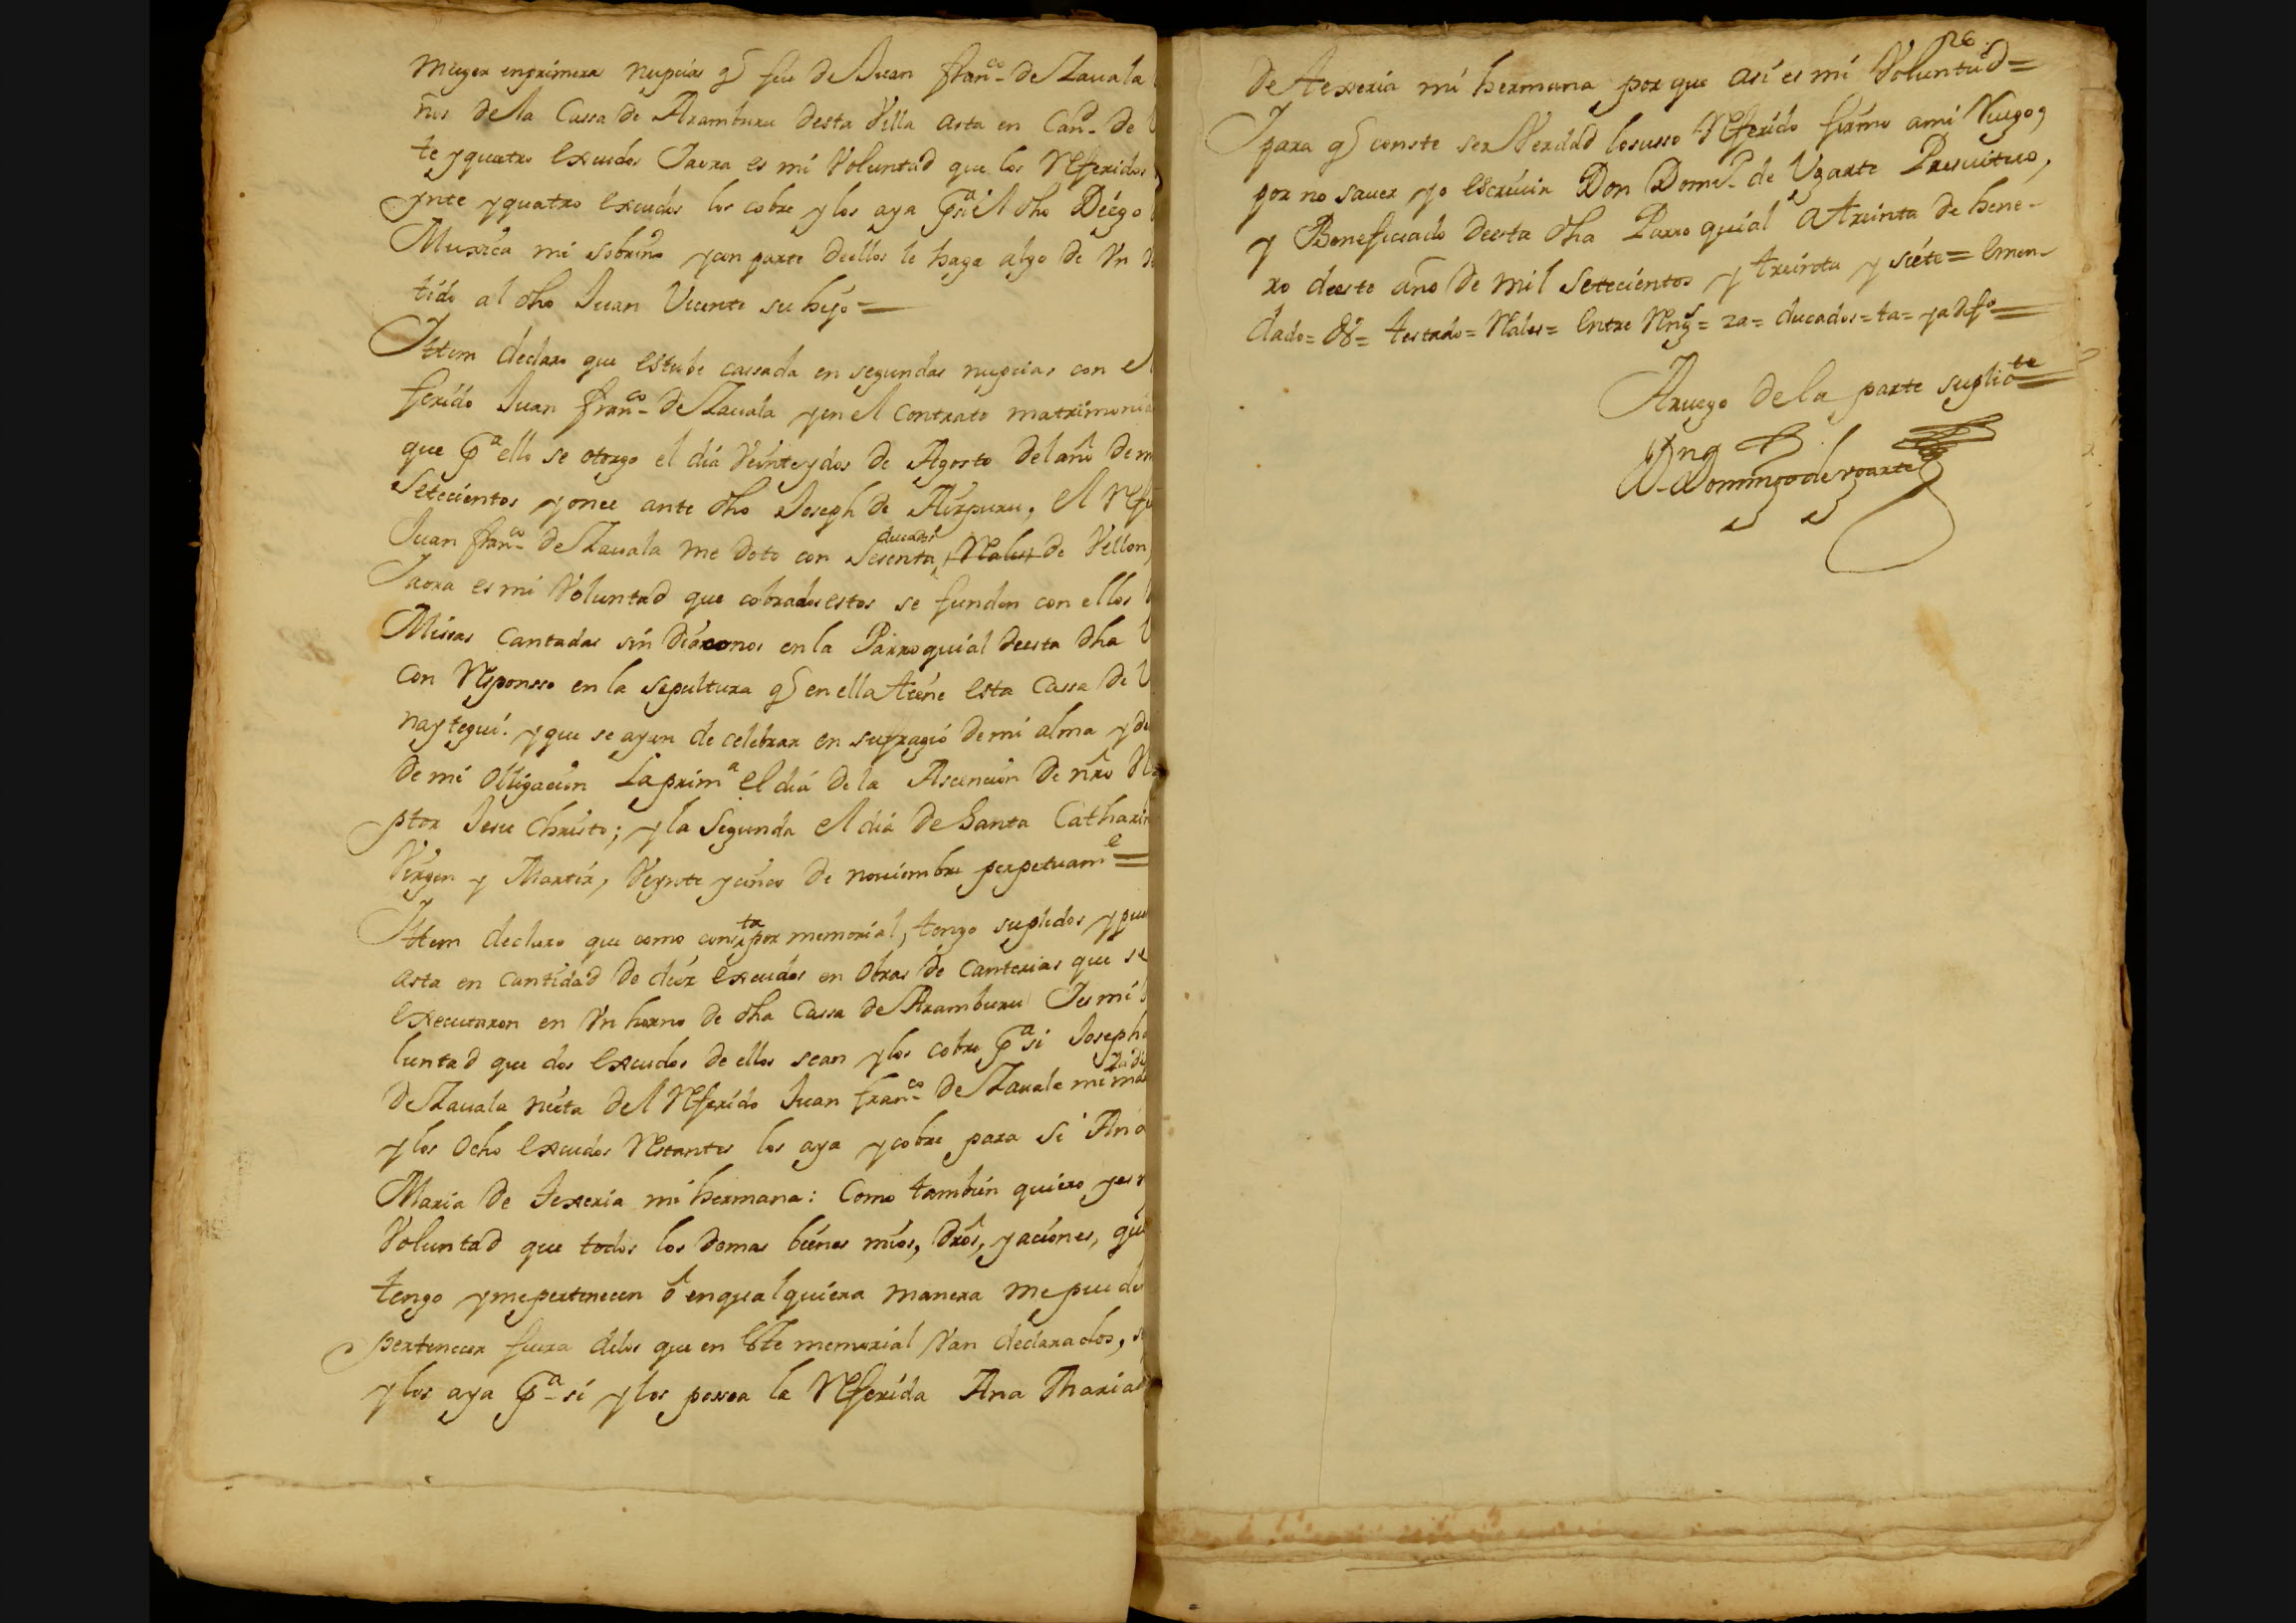 muger en primera nupcias q̃ fue de Juan Fran.co de Zauala
ños de la Cassa de Aramburu desta Villa asta en Cand. de
te y quatro escudos Jaora es mi Voluntad que los Referidos
ynte y quatro escudos los cobre y los aya p.a si el dho Diego
Muxica mi sobrino y con parte deellos le haga algo de Vn
tido al dho Juan Vicente su hijo=
Ittem declaro que estube cassada en segundas nupcias con el
ferido Juan fran.co de Zauala y en el contrato matrimonia
que p.a ello se otorgo el dia Veinte y dos de Agosto del año de m
Setecientos y once ante dho Joseph de Aizpuru, el Refe
ducados
Juan fran.co de Zauala me doto con Sesenta Reales de Vellon,
Jaora es mi Voluntad que cobrados estos se funden con ellos
Missas Cantadas sin Diaconos en la Parroquial deesta dha
con Responsso en la sepultura q̃ en ella tiene esta Cassa de
naytegui. y que se ayan de celebrar en sufragio de mi alma y de
de mi obligacion La prim.a el dia de la Ascencion de nr̃o Re
ptor Jesu Christo; y la Segunda el dia de Santa Catharin
Virgen y Martir, Veynte y cinco de nouiembre perpetuam.e=
Ittem declaro que como consta por memorial, tengo suplidos y pue
asta en cantidad de diez escudos en obras de Canterias que se
executaron en Vn horno de dha Cassa de Aramburu Jes mi
luntad que dos escudos de ellos sean y los cobre p.a si Josepha
de Zauala nieta del Referido Juan fran.co de Zauala mi ma
y los ocho escudos Restantes los aya y cobre para si Ana
Maria de Texeria mi hermana: Como tambien quiero y es
Voluntad que todos los demas bienes mios, dr̃os, y aciones, que
tengo y me pertenecen ô en qualquiera manera me puede
pertenecer fuera delos que en este memorial Van declarados, s
y los aya p.a si y los possea la Referida Ana Maria
26
de Texeria mi hermana por que asi es mi Voluntad=
Ipara q̃ conste ser Verdad losusso Referido firmo ami Ruego,
por no sauer yo escriuir Don Dom.o de Vgarte Presuitero,
y Beneficiado deesta dha Parroquial a treinta de hene-
ro deeste año de mil Setecientos y treinta y siete= emen-
dado= os= testado= Reales= Entre Rengs= za= ducados= ta=
Aruego de la parte suplicte
Dn Domingo de vgarte